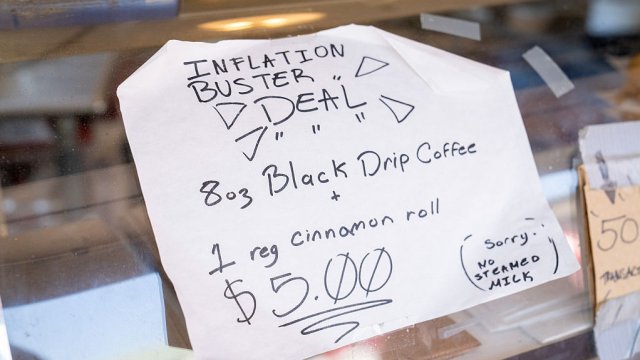 INFLATION
BUSTER
"DEAL"
" " "
8oz Black Drip Coffee
+
1 reg cinnamon roll
$5.00
(Sorry:
NO
STEAMED
MILK)
50